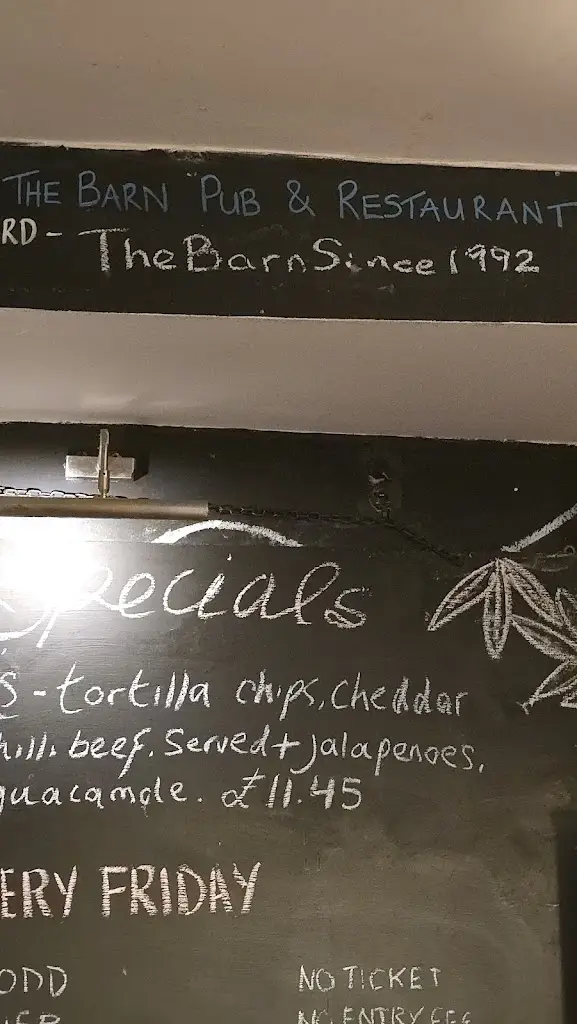 THE BARN PUB & RESTAURANT
RD - TheBarnSince 1992
Specials
S - tortilla chips, cheddar
hilli beef. Served + Jalapenoes,
guacamole. £11.45
ERY FRIDAY
ODD NO TICKET
NO ENTRY FEE